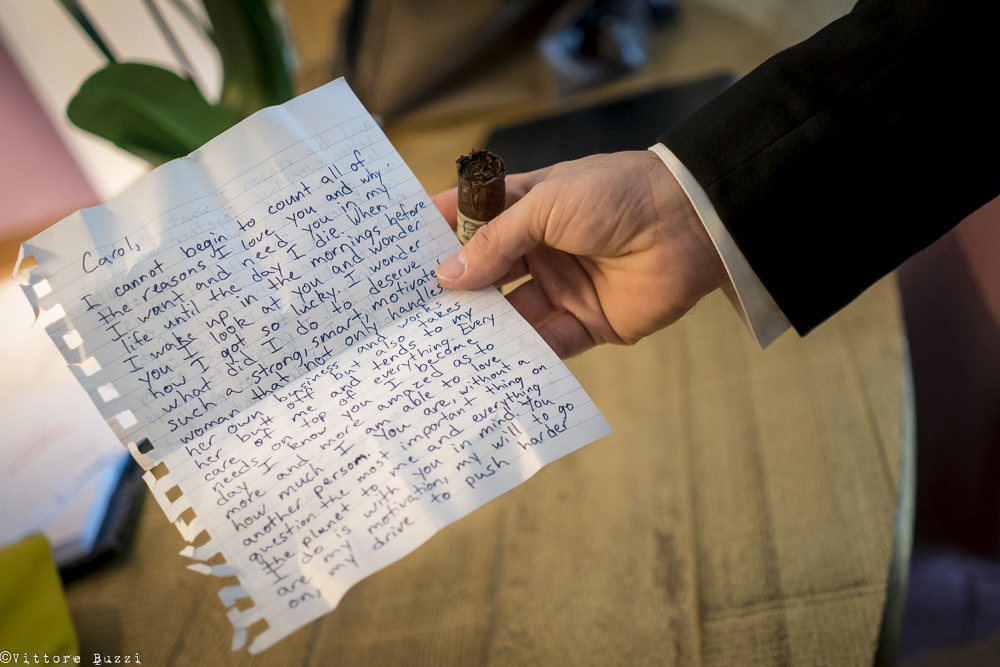 Carol,
I cannot begin to count all of
the reasons I love you and why
I want and need you in my
life until the day I die. When
I wake up in the mornings before
you I look at you and wonder
how I got so lucky. I wonder
what did I do to deserve
such a strong, smart, motivated
woman that not only handles
her own business and works
her butt off but also takes
care of me and tends to my
needs on top of everything. Every
day I know you I become
more and more amazed as to
how much I am able to love
another person. You are, without a
question the most important thing on
the planet to me and everything
I do is with you in mind. You
are my motivation, my will to go
on, my drive to push harder
©Vittore Buzzi